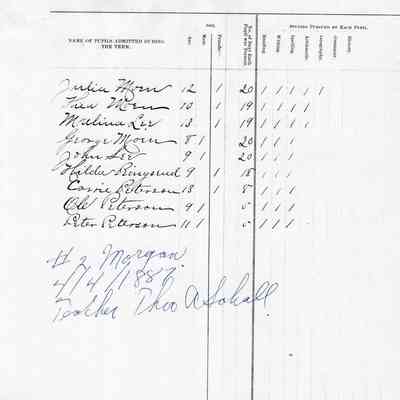 NAME OF PUPILS ADMITTED DURING THE TERM. Age. SEX. Male. Female. No. of Days Each Pupil was Present. STUDIES PURSUED BY EACH PUPIL. Reading. Writing. Spelling. Arithmetic. Geography. Grammar. History.
Julia Moen 12 1 20 1 1 1 1 1
Thea Moen 10 1 19 1 1 1 1 1
Malina Lee 13 1 19 1 1 1 1 1
George Moen 8 1 20 1 1 1
John Lee 9 1 20 1 1 1
Hilda Ringsrud 9 1 18 1 1 1
Carrie Peterson 13 1 8 1 1 1
Ole Peterson 9 1 5 1 1 1
Peter Peterson 11 1 5 1 1 1
# 2 Morgan
4/4/1887
Teacher Theo A Schall